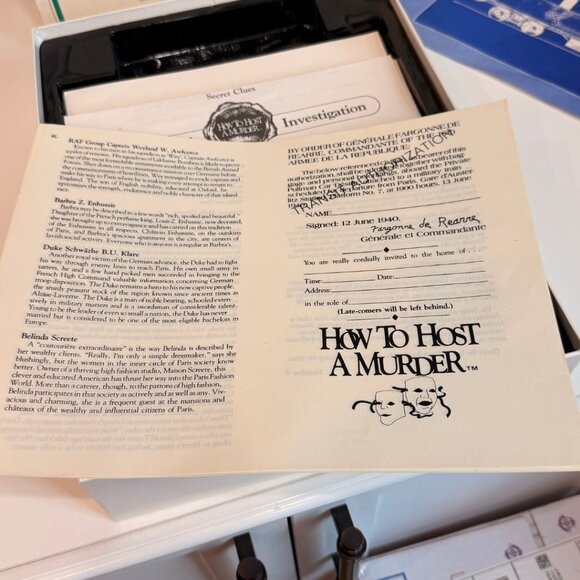 Secret Clues
HOW TO HOST
A MURDER
Investigation
RAF Group Captain Weyland W. Awfconce
Known to chaps in his squadron as "Way", Captain Awfconce is
a pilot of renown. His squadron of Lokheim Bombers is likely
one of the most formidable
Forces. Shot down on a reconnaissance mission over Germany before
the commencement of hostilities, Way managed to escape and
make his way to Paris where he is making every attempt to return to
England. The son of English nobility, educated at Oxford, he
epitomizes the strength, endurance and noble character of that island
Barbra Z. Enhussie
Barbra may be described in a few words "rich, spoiled and beautiful."
Daughter of the French perfume king, Louis Z. Enhussie, now deceased,
she was brought up to extravagance and has carried on this tradition
of the Enhussies in all respects. Château Enhussie, on the outskirts
of Paris, and Barbra's spacious apartment in the city, are centers of
lavish social activity. Everyone who is anyone is a regular at Barbra's.
Duke Schwäzhe B.U. Klare
Another royal victim of the German advance, the Duke had to fight
his way through enemy lines to reach Paris. His own small army in
tatters, he and a few hand picked men succeeded in bringing to the
French High Command valuable information concerning German
troop disposition. The Duke remains a hero to his now captive people,
the sturdy peasant stock of the region known since ancient times as
Alzäse-Laverne. The Duke is a man of noble bearing, schooled exten-
sively in military matters and is a swordsman of considerable talent.
Young to be the leader of even so small a nation, the Duke has never
married but is considered to be one of the most eligible bachelors in
Europe.
Belinda Screete
A "couturière extraordinaire" is the way Belinda is described by
her wealthy clients. "Really, I'm only a simple dressmaker," says she
blushingly, but the women in the inner circle of Paris society know
better. Owner of a thriving high fashion studio, Maison Screete, this
clever and educated American has thrust her way into the Paris Fashion
World. More than a caterer, though, to the patrons of high fashion,
Belinda participates in that society as actively and as well as any. Viv-
acious and charming, she is a frequent guest at the mansions and
châteaux of the wealthy and influential citizens of Paris.
BY ORDER OF GÉNÉRALE FARGONNE DE
REARRE, COMMANDANTE OF THE
ARMÉE DE LA REPUBLIQUE
TRANSIT AUTHORIZATION
The below referenced bearer of this
authorization, shall be together with bag-
gage and personal aboard the Private
Pullman Car attached to a military train
scheduled for departure from Paris, Gare d'Auster-
litz Station, Platform No. 7, at 1600 hours, 13 June
1940.
NAME
Signed: 12 June 1940,
Fargonne de Rearre
Générale et Commandante
You are really cordially invited to the home of . . .
Time Date:
Address:
in the role of
(Late-comers will be left behind.)
HOW TO HOST
A MURDER™